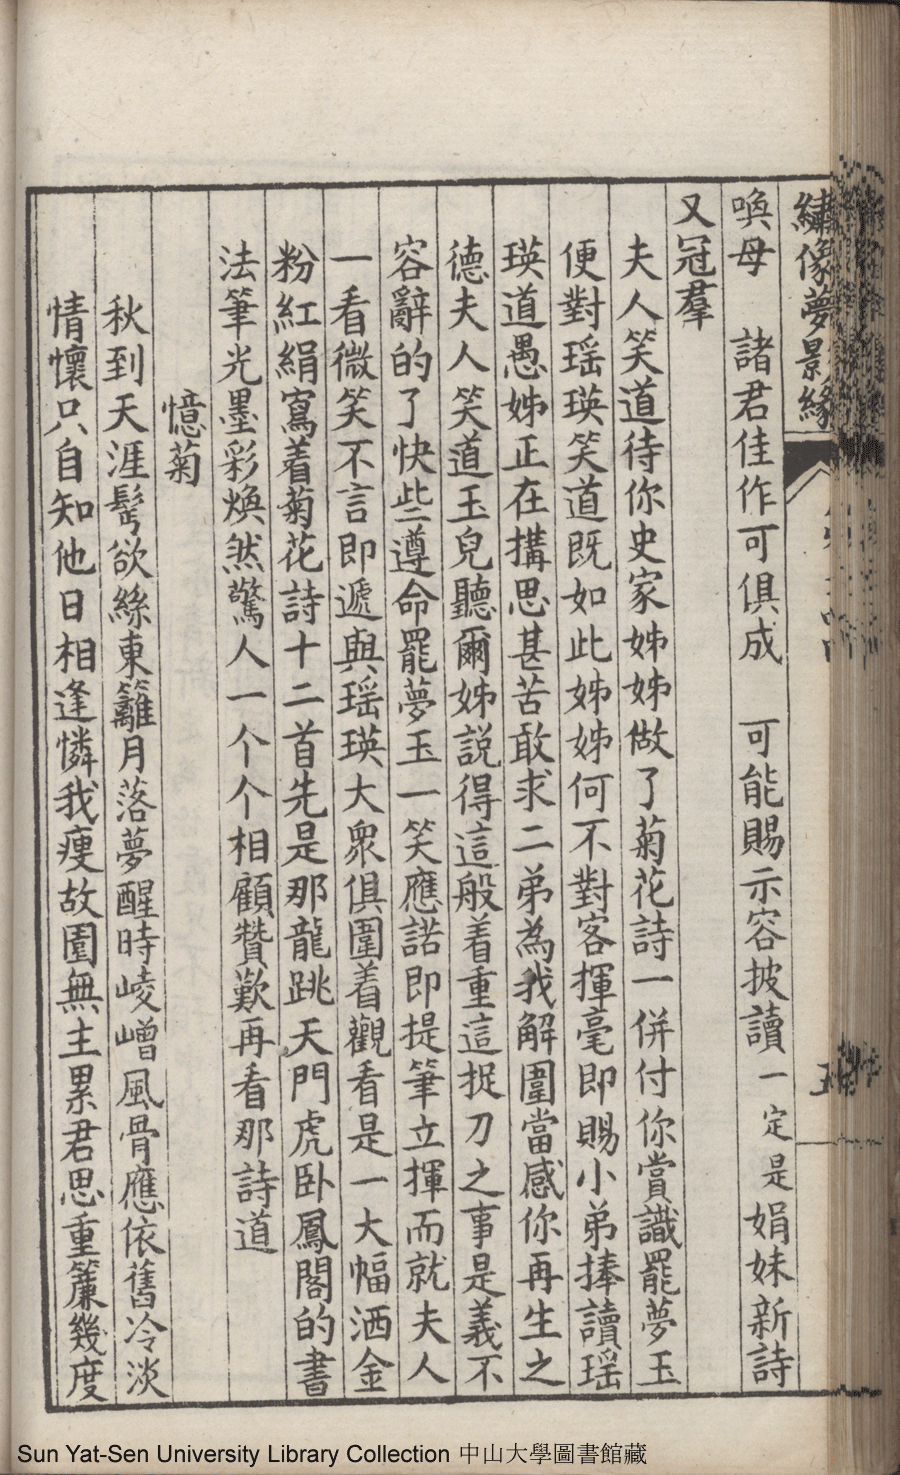 繡像夢景緣
喚母　諸君佳作可俱成　可能賜示容披讀一定是娟妹新詩
又冠羣
夫人笑道待你史家姊姊做了菊花詩一併付你賞識罷夢玉
便對瑶瑛笑道既如此姊姊何不對客揮毫即賜小弟捧讀瑶
瑛道愚姊正在搆思甚苦敢求二弟為我解圍當感你再生之
德夫人笑道玉兒聽爾姊説得這般着重這捉刀之事是義不
容辭的了快些遵命罷夢玉一笑應諾即提筆立揮而就夫人
一看微笑不言即遞與瑶瑛大衆俱圍着觀看是一大幅洒金
粉紅絹寫着菊花詩十二首先是那龍跳天門虎卧鳳閣的書
法筆光墨彩煥然驚人一个个相顧贊歎再看那詩道
憶菊
秋到天涯髩欲絲東籬月落夢醒時崚嶒風骨應依舊冷淡
情懷只自知他日相逢憐我瘦故園無主累君思重簾幾度
Sun Yat-Sen University Library Collection 中山大學圖書館藏